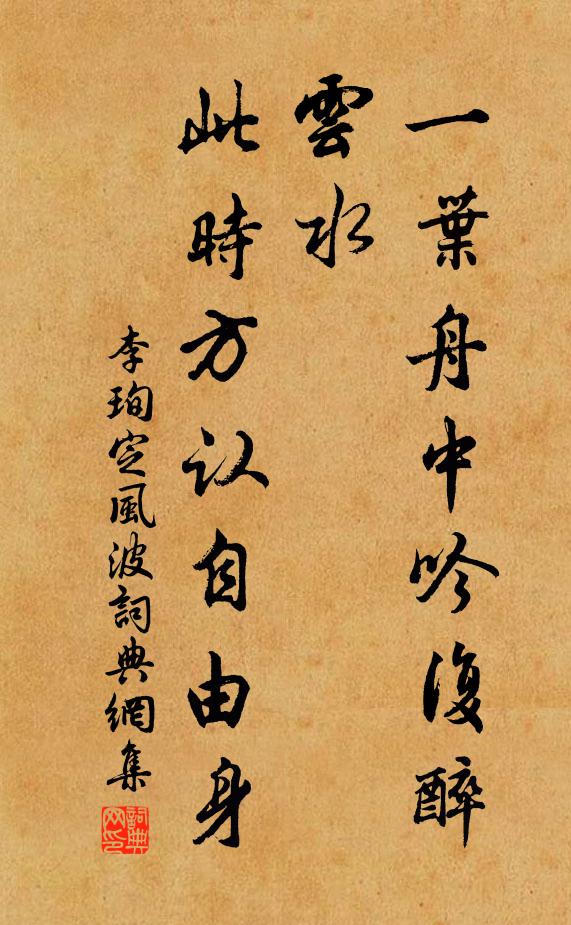 一葉舟中吟復醉
雲水
此時方认自由身
李珣定風波詞典網集
詞典网印